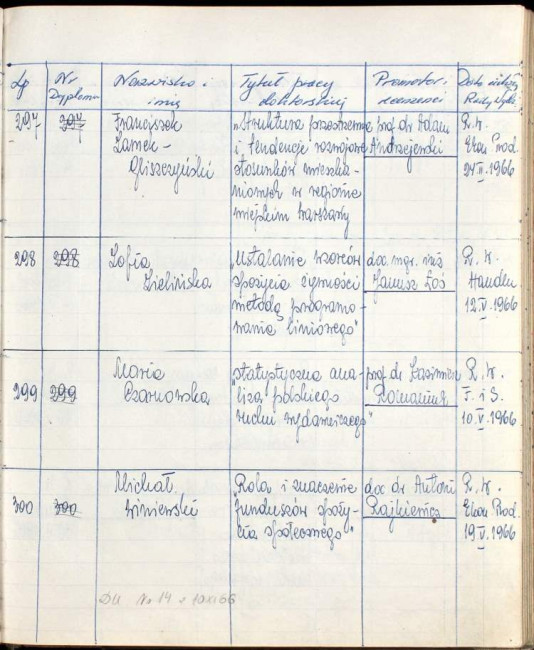 Lp
Nr
Dyplomu
Nazwisko i
imię
Tytuł pracy
doktorskiej
Promotor i
recenzenci
Data uchwały
Rady Wydz.
297
297
Franciszek
Zamek-
Gliszczyński
„Struktura przestrzenna
i tendencje rozwojowe
stosunków mieszka-
niowych w regionie
miejskim Warszawy
prof. dr Adam
Andrzejewski
R. W.
Ekon. Prod.
24 II. 1966
298
298
Zofia
Zielińska
„Ustalanie wzorców
spożycia żywności
metodą programo-
wania liniowego"
doc. mgr. inż
Janusz Łoś
R. W.
Handlu
12.V.1966
299
299
Maria
Czarnowska
„statystyczna ana-
liza polskiego
ruchu wydawniczego"
prof dr Kazimierz
Romaniuk
R. W.
F. i S.
10.V.1966
300
300
Michał
Winiewski
„Rola i znaczenie
funduszów spoży-
cia społecznego"
doc dr Antoni
Rajkiewicz
R. W.
Ekon. Prod.
19.V.1966
DU Nr 14 z 10 XI 66